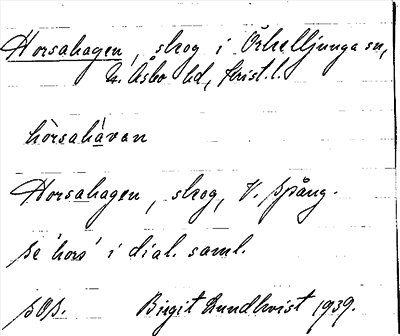 Horsahagen, skog i Örkelljunga sn,
N. Åsbo hd, Krist. l.
hòrsahàvan
Horsahagen, skog, V. Spång.
se 'hors' i dial. saml.
Birgit Lundkvist 1939.